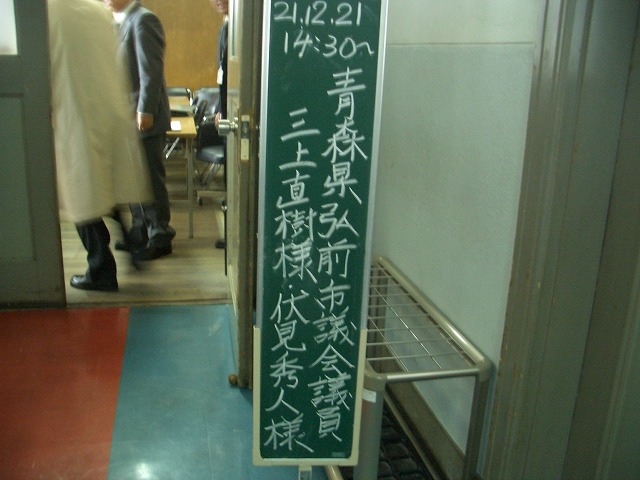 21.12.21
14:30~
青森県弘前市議会議員
三上直樹様・伏見秀人様